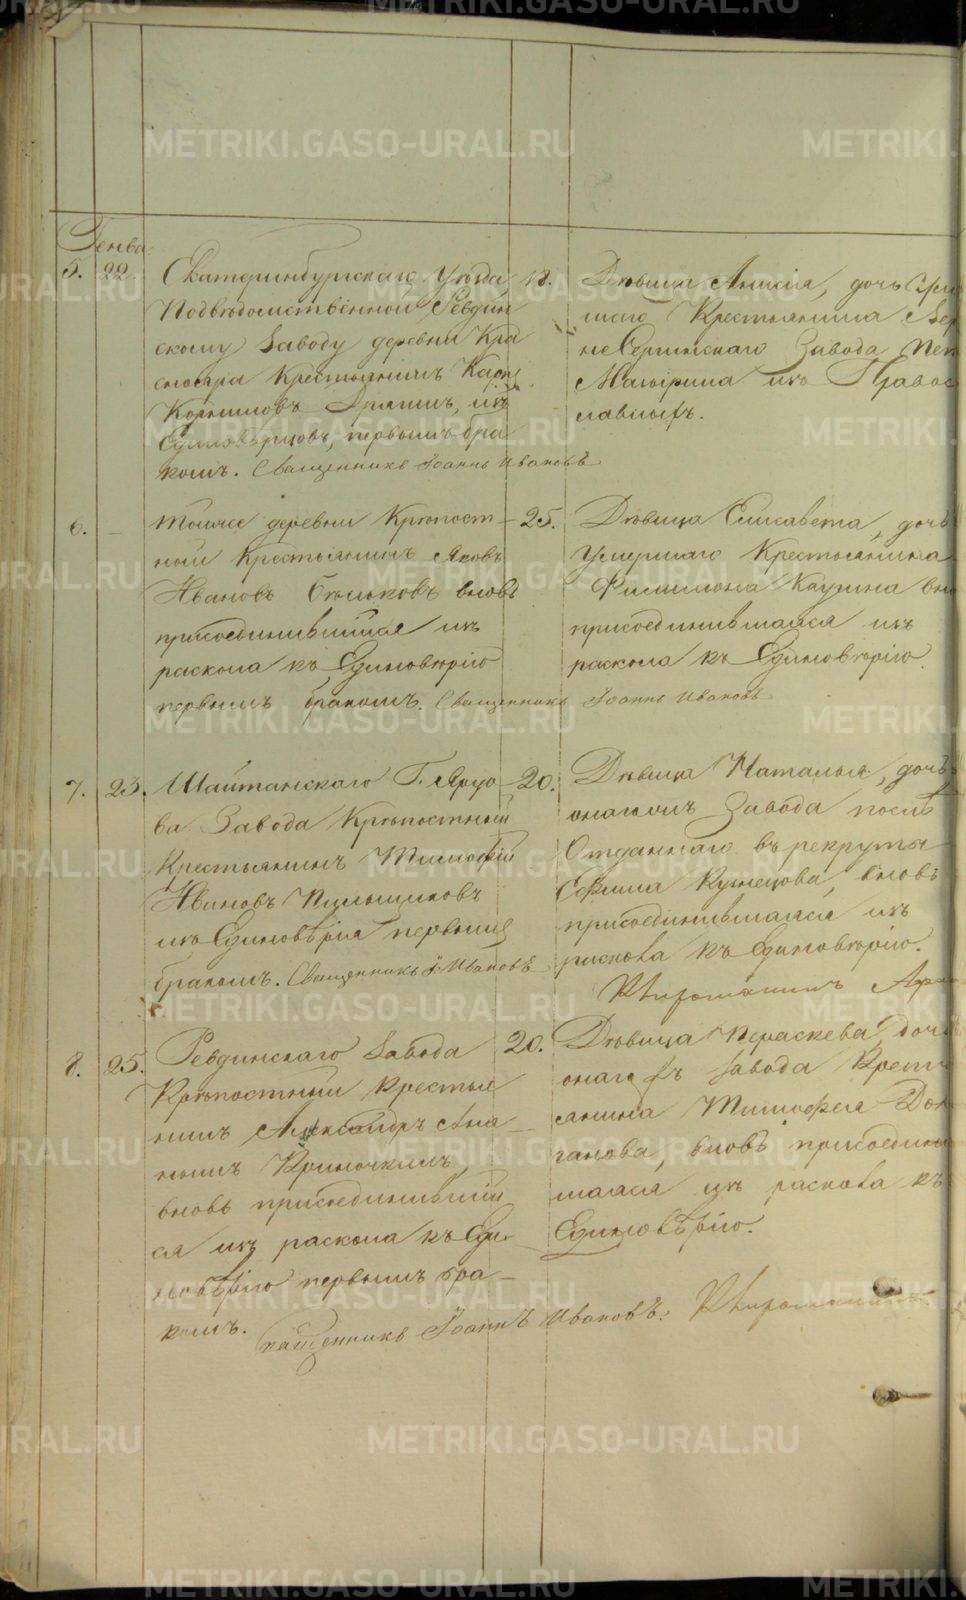 METRIKI.GASO-URAL.RU
Генва
5. 22. Екатеринбургскаго Уѣзда
Подвѣдомственной Ревдин
скому Заводу деревни Кра
снояра Крестьянинъ Карпъ
Корниловъ изъ
Единовѣрцовъ, первымъ бра
комъ. Священникъ Iоаннъ Ивановъ
18. Дѣвица Анисiя, дочь
Крестьянина
Сергинскаго Завода
изъ Правос
лавныхъ.
6. – Тойже деревни Крѣпост
ной Крестьянинъ Яковъ
Ивановъ Бѣльковъ вновь
присоединившiйся изъ
раскола къ Единовѣрiю
первымъ бракомъ. Священникъ Iоаннъ Ивановъ
25. Дѣвица Елисавета, дочь
Умершаго Крестьянина
Филимона Каукина
присоединившаяся изъ
раскола къ Единовѣрiю.
7. 23. Шайтанскаго Г. Ярцо
ва Завода Крѣпостный
Крестьянинъ Тимофей
Ивановъ Пильщиковъ
изъ Единовѣрiя первымъ
бракомъ. Священникъ I. Ивановъ
20. Дѣвица Наталья, дочь
онагожъ Завода послѣ
Отданнаго въ рекруты
Ефима Кузнецова, вновь
присоединившаяся изъ
раскола къ Единовѣрiю.
8. 25. Ревдинскаго Завода
Крѣпостный Крестья
нинъ Александръ Ана
ньинъ Криночкинъ,
вновь присоединившiй
ся изъ раскола къ Еди
новѣрiю первымъ бра
комъ.
20. Дѣвица Параскева, доч
онагожъ Завода Крест
янина Тимофея Дол
ганова, вновь присоедини
шаяся изъ раскола къ
Единовѣрiю.
Священникъ Iоаннъ Ивановъ.